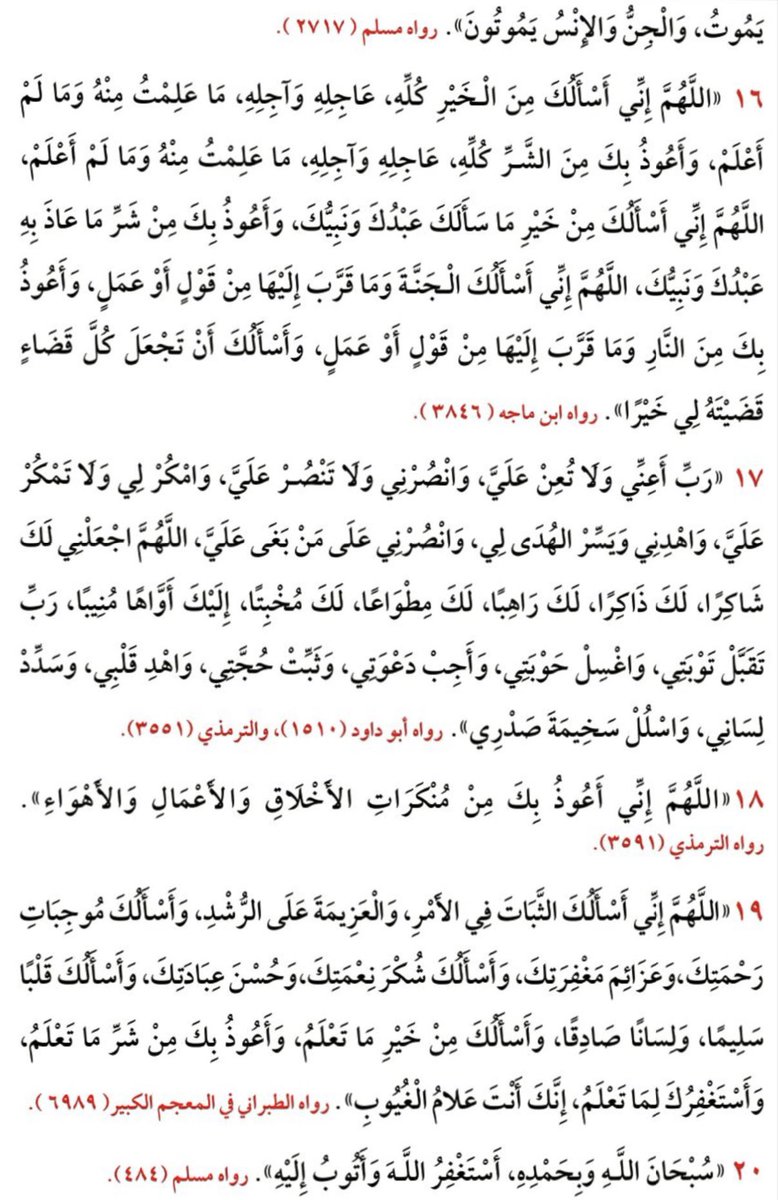 يَمُوتُ، وَالْجِنُّ وَالإِنْسُ يَمُوتُونَ». رواه مسلم (٢٧١٧).
١٦ «اللَّهُمَّ إِنِّي أَسْأَلُكَ مِنَ الْخَيْرِ كُلِّهِ، عَاجِلِهِ وَآجِلِهِ، مَا عَلِمْتُ مِنْهُ وَمَا لَمْ
أَعْلَمْ، وَأَعُوذُ بِكَ مِنَ الشَّرِّ كُلِّهِ، عَاجِلِهِ وَآجِلِهِ، مَا عَلِمْتُ مِنْهُ وَمَا لَمْ أَعْلَمْ،
اللَّهُمَّ إِنِّي أَسْأَلُكَ مِنْ خَيْرِ مَا سَأَلَكَ عَبْدُكَ وَنَبِيُّكَ، وَأَعُوذُ بِكَ مِنْ شَرِّ مَا عَاذَ بِهِ
عَبْدُكَ وَنَبِيُّكَ، اللَّهُمَّ إِنِّي أَسْأَلُكَ الْجَنَّةَ وَمَا قَرَّبَ إِلَيْهَا مِنْ قَوْلٍ أَوْ عَمَلٍ، وَأَعُوذُ
بِكَ مِنَ النَّارِ وَمَا قَرَّبَ إِلَيْهَا مِنْ قَوْلٍ أَوْ عَمَلٍ، وَأَسْأَلُكَ أَنْ تَجْعَلَ كُلَّ قَضَاءٍ
قَضَيْتَهُ لِي خَيْرًا». رواه ابن ماجه (٣٨٤٦).
١٧ «رَبِّ أَعِنِّي وَلَا تُعِنْ عَلَيَّ، وَانْصُرْنِي وَلَا تَنْصُرْ عَلَيَّ، وَامْكُرْ لِي وَلَا تَمْكُرْ
عَلَيَّ، وَاهْدِنِي وَيَسِّرْ الهُدَى لِي، وَانْصُرْنِي عَلَى مَنْ بَغَى عَلَيَّ، اللَّهُمَّ اجْعَلْنِي لَكَ
شَاكِرًا، لَكَ ذَاكِرًا، لَكَ رَاهِبًا، لَكَ مِطْوَاعًا، لَكَ مُخْبِتًا، إِلَيْكَ أَوَّاهًا مُنِيبًا، رَبِّ
تَقَبَّلْ تَوْبَتِي، وَاغْسِلْ حَوْبَتِي، وَأَجِبْ دَعْوَتِي، وَثَبِّتْ حُجَّتِي، وَاهْدِ قَلْبِي، وَسَدِّدْ
لِسَانِي، وَاسْلُلْ سَخِيمَةَ صَدْرِي». رواه أبو داود (١٥١٠)، والترمذي (٣٥٥١).
١٨ «اللَّهُمَّ إِنِّي أَعُوذُ بِكَ مِنْ مُنْكَرَاتِ الأَخْلَاقِ وَالأَعْمَالِ وَالأَهْوَاءِ».
رواه الترمذي (٣٥٩١).
١٩ «اللَّهُمَّ إِنِّي أَسْأَلُكَ الثَّبَاتَ فِي الأَمْرِ، وَالْعَزِيمَةَ عَلَى الرُّشْدِ، وَأَسْأَلُكَ مُوجِبَاتِ
رَحْمَتِكَ، وَعَزَائِمَ مَغْفِرَتِكَ، وَأَسْأَلُكَ شُكْرَ نِعْمَتِكَ، وَحُسْنَ عِبَادَتِكَ، وَأَسْأَلُكَ قَلْبًا
سَلِيمًا، وَلِسَانًا صَادِقًا، وَأَسْأَلُكَ مِنْ خَيْرِ مَا تَعْلَمُ، وَأَعُوذُ بِكَ مِنْ شَرِّ مَا تَعْلَمُ،
وَأَسْتَغْفِرُكَ لِمَا تَعْلَمُ، إِنَّكَ أَنْتَ عَلامُ الْغُيُوبِ». رواه الطبراني في المعجم الكبير (٦٩٨٩).
٢٠ «سُبْحَانَ اللَّهِ وَبِحَمْدِهِ، أَسْتَغْفِرُ اللَّهَ وَأَتُوبُ إِلَيْهِ». رواه مسلم (٤٨٤).